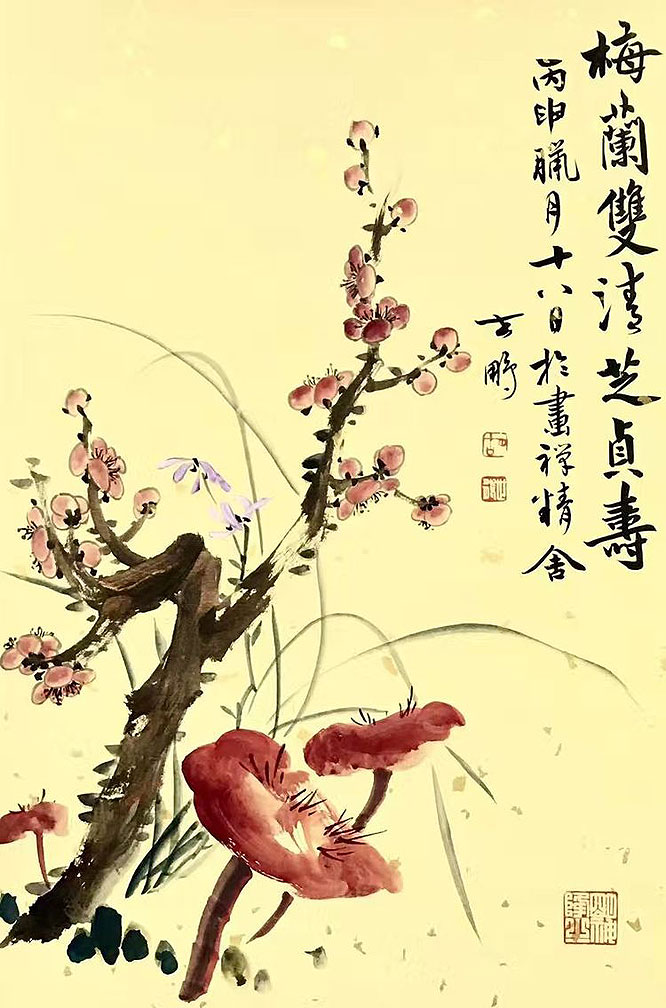 梅蘭雙清芝貞壽
丙申臘月十八日於畫禪精舍